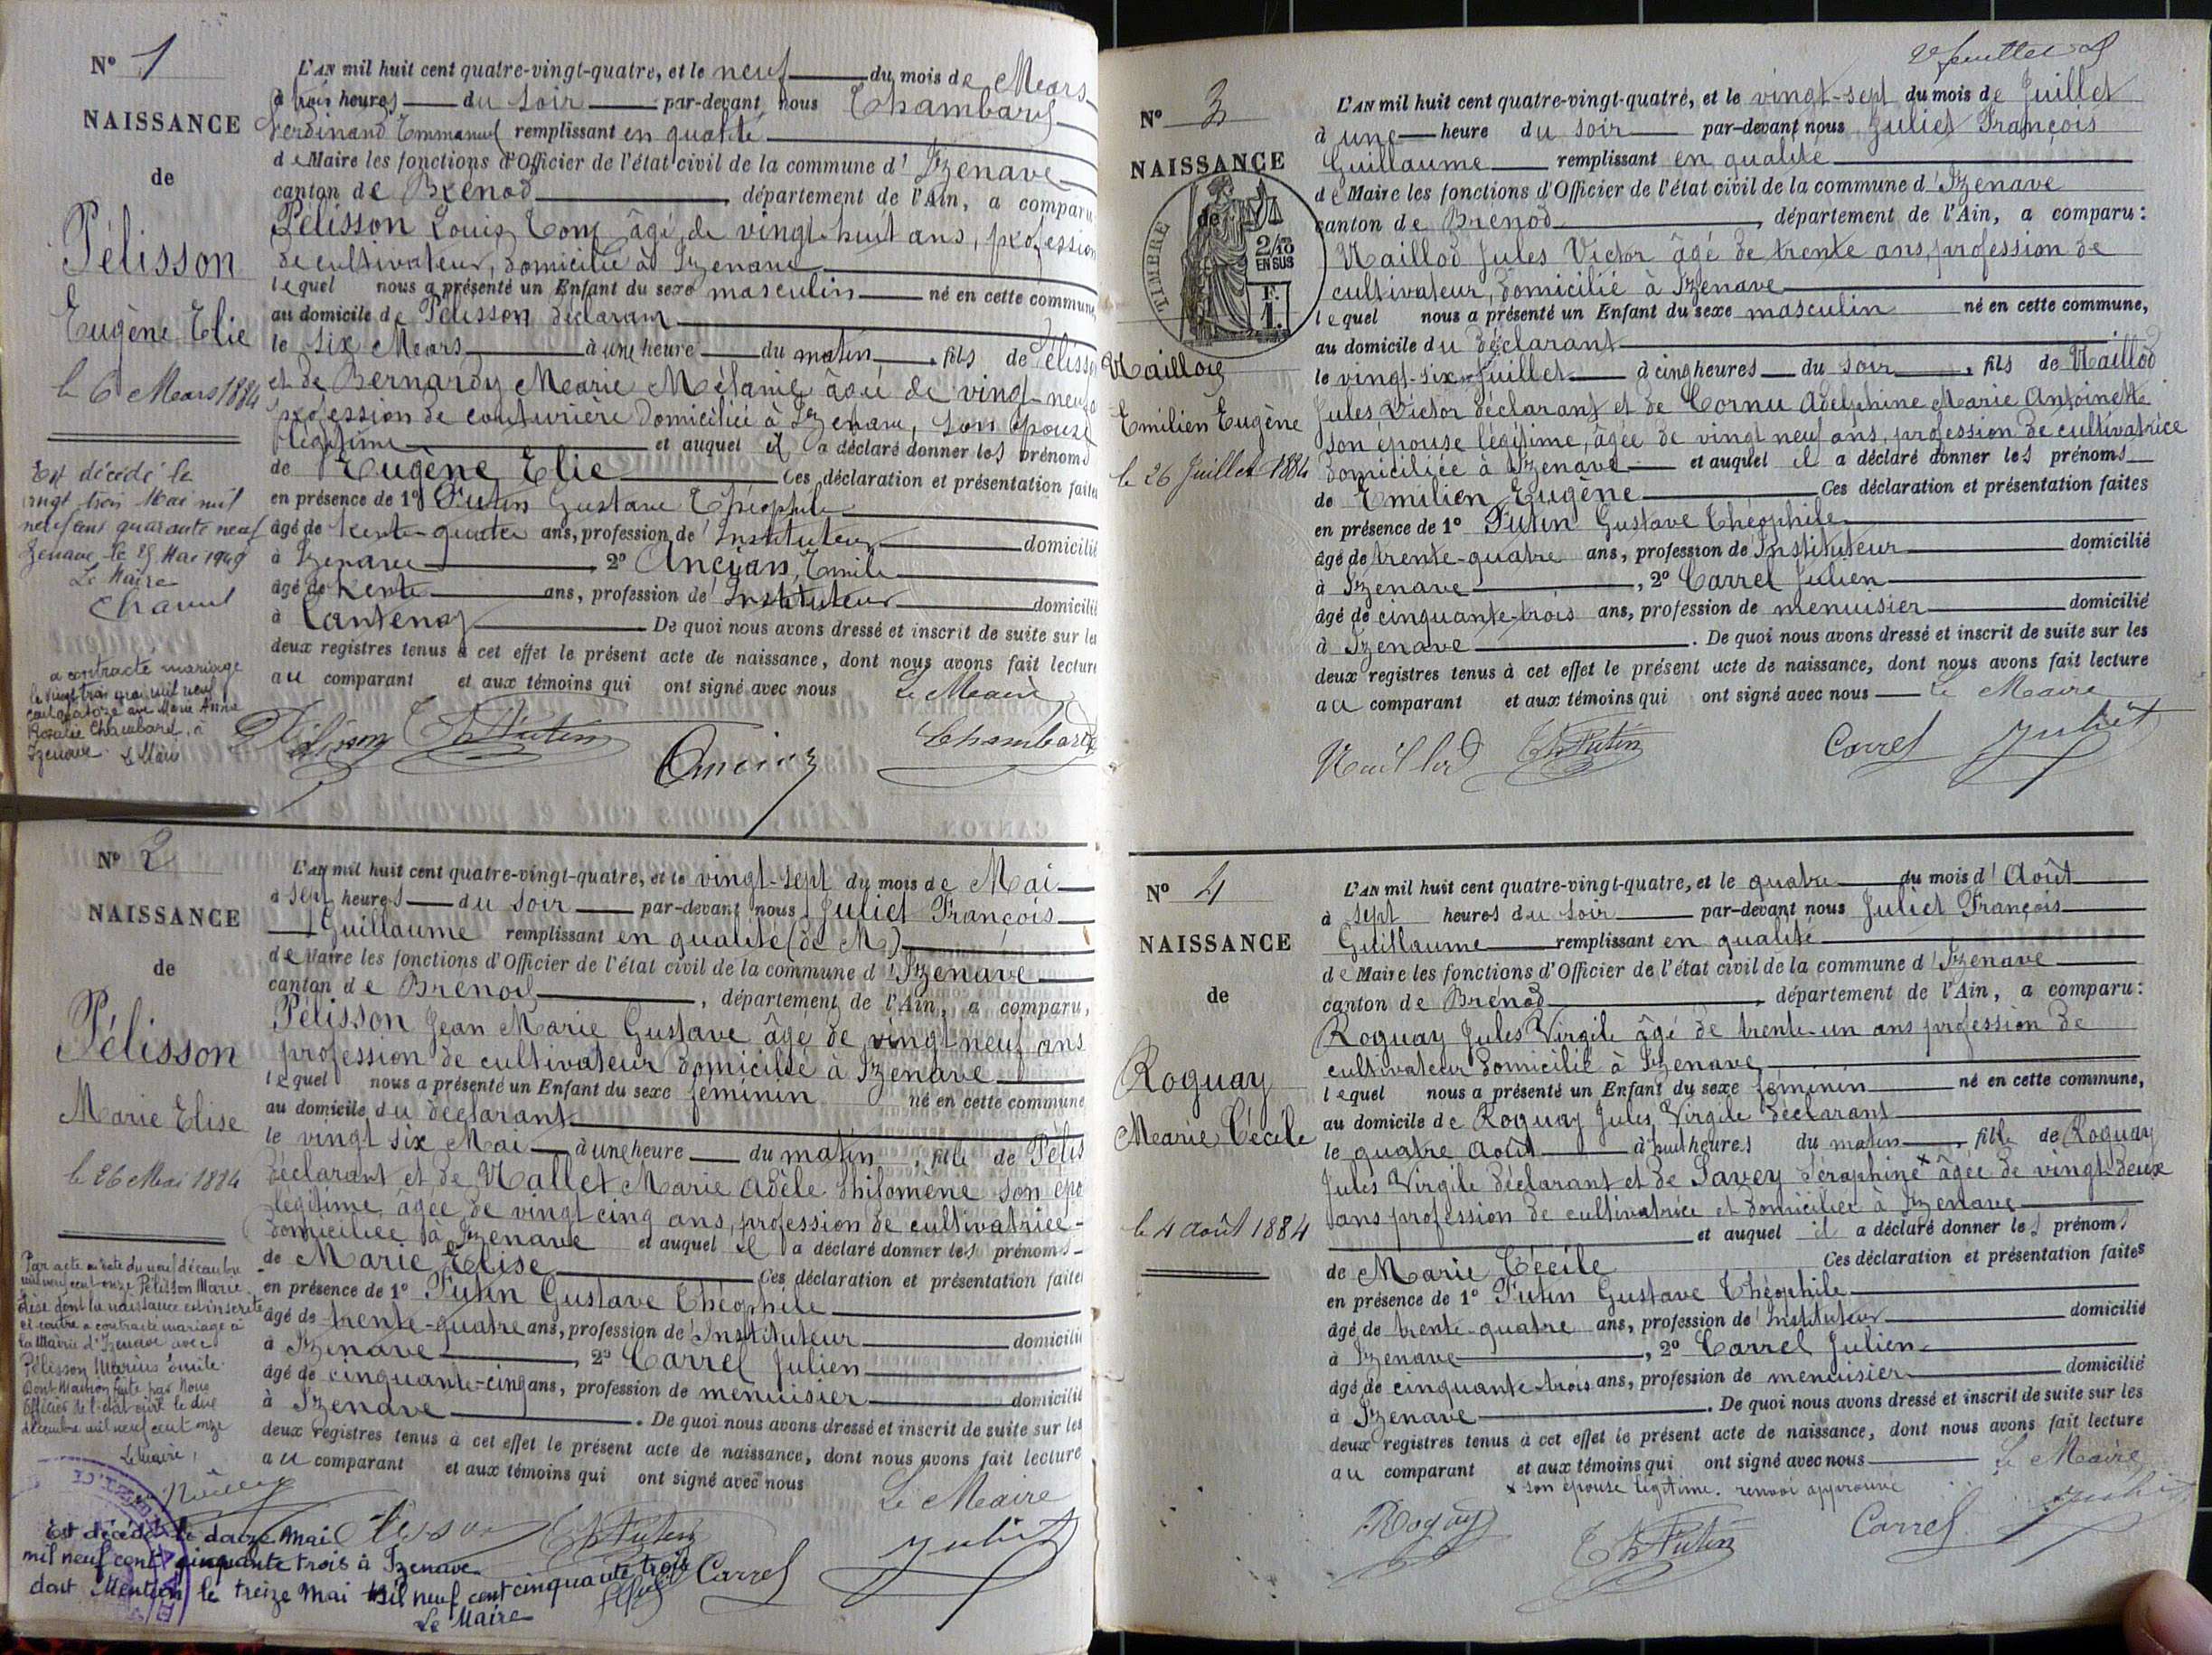 N° 1
NAISSANCE
de
Pélisson
Eugène Elie
le 6 Mars 1884
Est décédé le
vingt trois Mai mil
neuf cent quarante neuf
Izenave le 25 Mai 1949
Le Maire
a contracté mariage
le vingt trois mai mil neuf
cent quatorze avec Marie Anna
Rosalie Chambard, à
Izenave. Le Maire
L'AN mil huit cent quatre-vingt-quatre, et le neuf du mois de Mars
à trois heures du soir par-devant nous Chambard
Ferdinand Emmanuel remplissant en qualité
de Maire les fonctions d'Officier de l'état civil de la commune d'Izenave
canton de Brénod, département de l'Ain, a comparu
Pélisson Louis Tony âgé de vingt-huit ans, profession
de cultivateur, domicilié à Izenave
lequel nous a présenté un Enfant du sexe masculin né en cette commune
au domicile de Pélisson déclarant
le six Mars à une heure du matin, fils de Pélisson
et de Bernardy Marie Mélanie âgée de vingt-neuf
profession de couturière domiciliée à Izenave, son épouse
légitime et auquel il a déclaré donner les prénoms
de Eugène Elie Ces déclaration et présentation faites
en présence de 1° Futin Gustave Théophile
âgé de trente-quatre ans, profession d'Instituteur domicilié
à Izenave 2° Ancian, Emile
âgé de trente ans, profession d'Instituteur domicilié
à Lantenay De quoi nous avons dressé et inscrit de suite sur les
deux registres tenus à cet effet le présent acte de naissance, dont nous avons fait lecture
au comparant et aux témoins qui ont signé avec nous Le Maire
Pélisson Th Futin Ancian Chambard
N° 2
NAISSANCE
de
Pélisson
Marie Elise
le 26 Mai 1884
Par acte en date du neuf décembre
mil neuf cent onze Pélisson Marie
Elise dont la naissance est inscrite
ci-contre a contracté mariage à
la Mairie d'Izenave avec
Pélisson Marius Emile.
Dont Mention faite par Nous
Officier de l'état civil le dix
décembre mil neuf cent onze
Le Maire,
L'AN mil huit cent quatre-vingt-quatre, et le vingt-sept du mois de Mai
à sept heures du soir par-devant nous Juliet François
Guillaume remplissant en qualité (de M)
de Maire les fonctions d'Officier de l'état civil de la commune d'Izenave
canton de Brénod, département de l'Ain, a comparu,
Pélisson Jean Marie Gustave âgé de vingt-neuf ans
profession de cultivateur domicilié à Izenave
lequel nous a présenté un Enfant du sexe féminin né en cette commune
au domicile du déclarant
le vingt six Mai à une heure du matin, fille de Pélis
déclarant et de Mallet Marie Adèle Philomène son épo
légitime, âgée de vingt cinq ans, profession de cultivatrice
domiciliée à Izenave et auquel il a déclaré donner les prénoms
de Marie Elise Ces déclaration et présentation faites
en présence de 1° Futin Gustave Théophile
âgé de trente-quatre ans, profession d'Instituteur domicilié
à Izenave, 2° Carrel Julien
âgé de cinquante-cinq ans, profession de menuisier domicilié
à Izenave. De quoi nous avons dressé et inscrit de suite sur les
deux registres tenus à cet effet le présent acte de naissance, dont nous avons fait lecture
au comparant et aux témoins qui ont signé avec nous
Le Maire
Pélisson Th Futin Carrel Juliet
Est décédée le douze Mai
mil neuf cent cinquante trois à Izenave
dont Mention le treize Mai mil neuf cent cinquante trois
Le Maire
2e feuillet
N° 3
NAISSANCE
de
TIMBRE
2/10 EN SUS
F. 1.
Maillod
Emilien Eugène
le 26 Juillet 1884
L'AN mil huit cent quatre-vingt-quatre, et le vingt-sept du mois de Juillet
à une heure du soir par-devant nous Juliet François
Guillaume remplissant en qualité
de Maire les fonctions d'Officier de l'état civil de la commune d'Izenave
canton de Brénod, département de l'Ain, a comparu:
Maillod Jules Victor âgé de trente ans, profession de
cultivateur, domicilié à Izenave
lequel nous a présenté un Enfant du sexe masculin né en cette commune,
au domicile du déclarant
le vingt-six Juillet à cinq heures du soir, fils de Maillod
Jules Victor déclarant et de Cornu Adelphine Marie Antoinette
son épouse légitime, âgée de vingt neuf ans, profession de cultivatrice
domiciliée à Izenave et auquel il a déclaré donner les prénoms
de Emilien Eugène Ces déclaration et présentation faites
en présence de 1° Futin Gustave Théophile
âgé de trente-quatre ans, profession d'Instituteur domicilié
à Izenave, 2° Carrel Julien
âgé de cinquante-trois ans, profession de menuisier domicilié
à Izenave. De quoi nous avons dressé et inscrit de suite sur les
deux registres tenus à cet effet le présent acte de naissance, dont nous avons fait lecture
au comparant et aux témoins qui ont signé avec nous Le Maire
Maillod Th Futin Carrel Juliet
N° 4
NAISSANCE
de
Roguay
Marie Cécile
le 4 Août 1884
L'AN mil huit cent quatre-vingt-quatre, et le quatre du mois d'Août
à sept heures du soir par-devant nous Juliet François
Guillaume remplissant en qualité
de Maire les fonctions d'Officier de l'état civil de la commune d'Izenave
canton de Brénod, département de l'Ain, a comparu:
Roguay Jules Virgile âgé de trente-un ans profession de
cultivateur domicilié à Izenave
lequel nous a présenté un Enfant du sexe féminin né en cette commune,
au domicile de Roguay Jules Virgile déclarant
le quatre Août à huit heures du matin, fille de Roguay
Jules Virgile déclarant et de Savey Séraphine x âgée de vingt-deux
ans profession de cultivatrice et domiciliée à Izenave
et auquel il a déclaré donner les prénoms
de Marie Cécile Ces déclaration et présentation faites
en présence de 1° Futin Gustave Théophile
âgé de trente-quatre ans, profession d'Instituteur domicilié
à Izenave, 2° Carrel Julien
âgé de cinquante-trois ans, profession de menuisier domicilié
à Izenave. De quoi nous avons dressé et inscrit de suite sur les
deux registres tenus à cet effet le présent acte de naissance, dont nous avons fait lecture
au comparant et aux témoins qui ont signé avec nous Le Maire
x son épouse légitime. renvoi approuvé
Roguay Th Futin Carrel Juliet